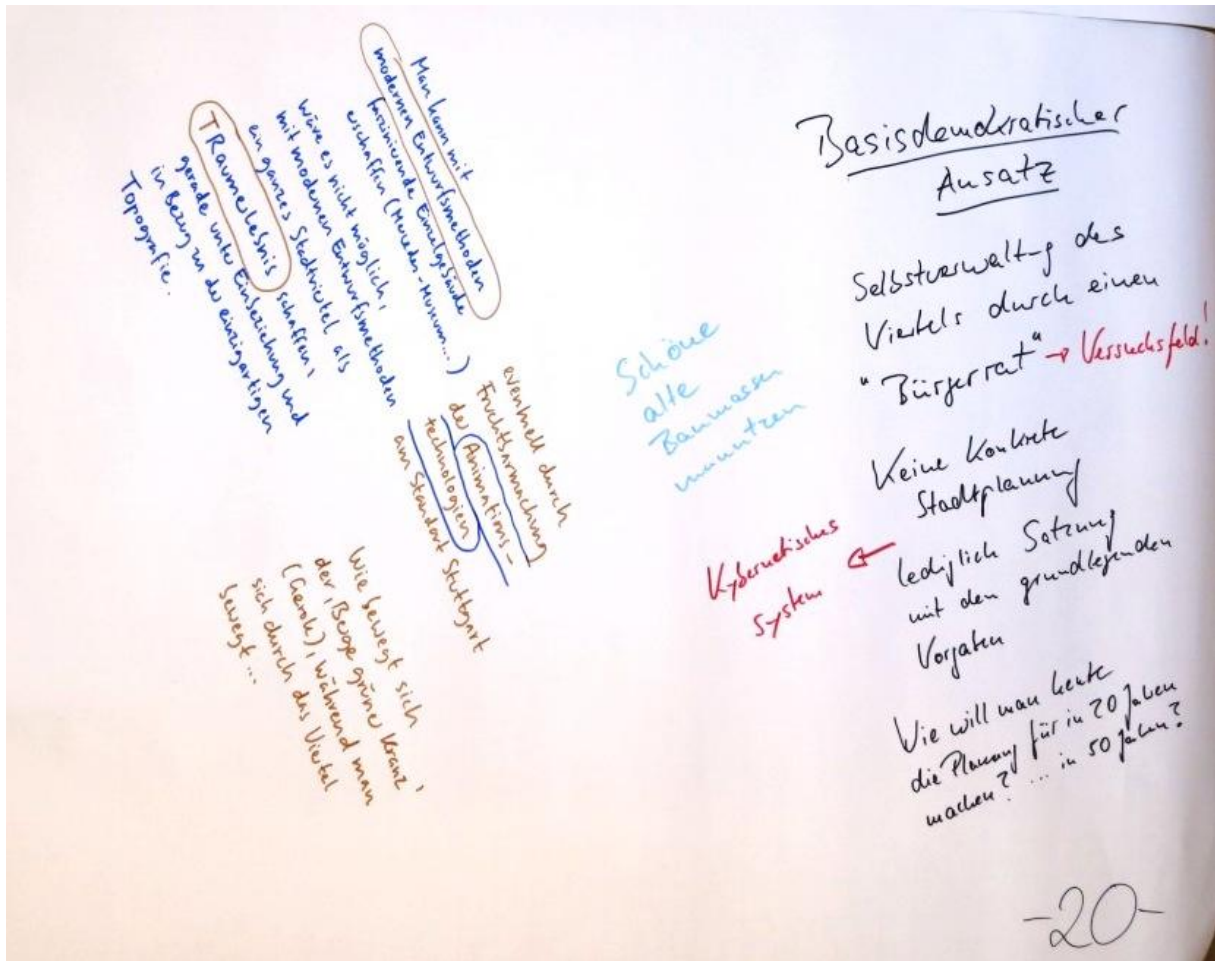 Man kann mit
modernen Entwurfsmethoden
faszinierende Einzelgebäude
erschaffen (Mercedes-Museum...)
wäre es nicht möglich,
mit modernen Entwurfsmethoden
ein ganzes Stadtviertel als
TRaumerlebnis schaffen,
gerade unter Einbeziehung und
in Bezug zu der einzigartigen
Topografie.
eventuell durch
Fruchtbarmachung
der Animations-
technologien
am Standort Stuttgart
Wie bewegt sich
der 'Berge grüner Kranz'
(Gerok), während man
sich durch das Viertel
bewegt...
Schöne
alte
Baumassen
Basisdemokratischer
Ansatz
Selbstverwaltung des
Viertels durch einen
"Bürgerrat" → Versuchsfeld!
Keine Konkrete
Stadtplanung
Kybernetisches
System
←
lediglich Satzung
mit den grundlegenden
Vorgaben
Wie will man heute
die Planung für in 20 Jahren
machen? ... in 50 Jahren?
-20-